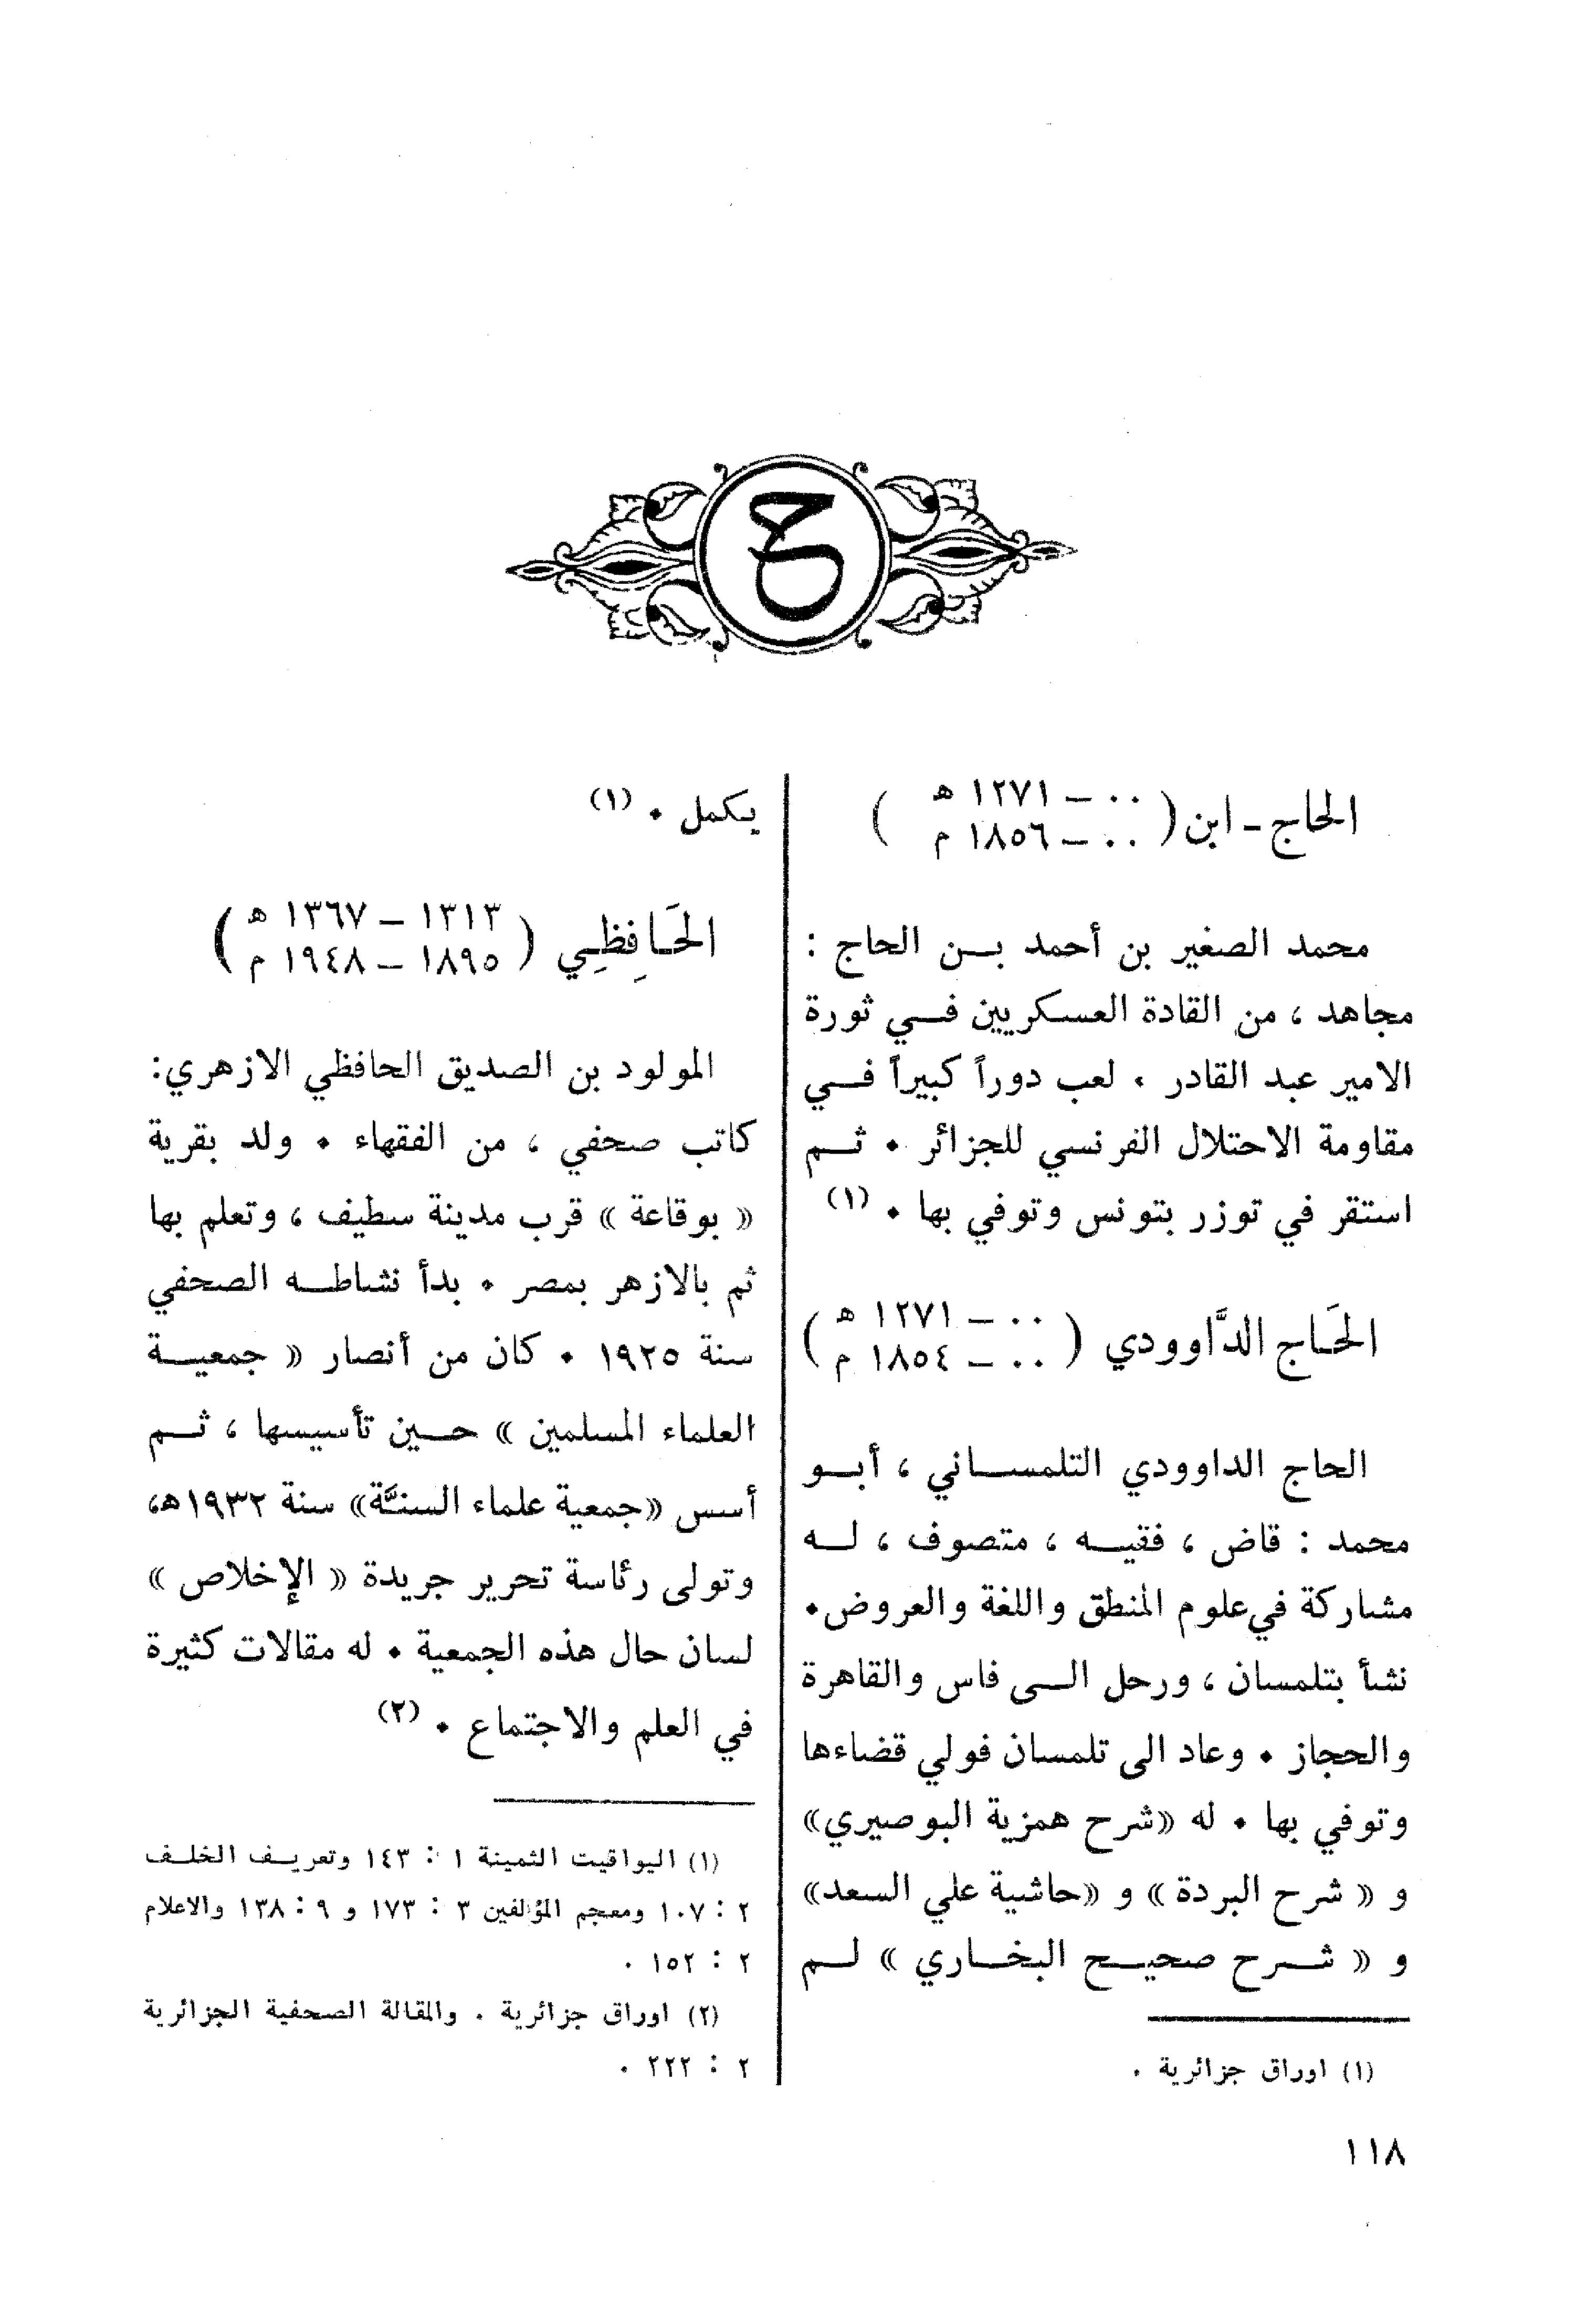 ح
الحاج - ابن ( ٠٠ – ١٢٧١ ه
٠٠ – ١٨٥٦ م )
محمد الصغير بن أحمد بن الحاج :
مجاهد ، من القادة العسكريين في ثورة
الامير عبد القادر ، لعب دوراً كبيراً في
مقاومة الاحتلال الفرنسي للجزائر ٠ ثم
استقر في توزر بتونس وتوفي بها ٠ (١)
الحَاج الدَّاوودي ( ٠٠ – ١٢٧١ ه
٠٠ – ١٨٥٤ م )
الحاج الداوودي التلمساني ، أبو
محمد : قاض ، فقيه ، متصوف ، له
مشاركة في علوم المنطق واللغة والعروض ٠
نشأ بتلمسان ، ورحل الى فاس والقاهرة
والحجاز ٠ وعاد الى تلمسان فولي قضاءها
وتوفي بها ٠ له «شرح همزية البوصيري»
و « شرح البردة » و «حاشية علي السعد»
و « شرح صحيح البخاري » لم
(١) اوراق جزائرية .
يكمل ٠ (١)
الحَافِظِي ( ١٣١٣ – ١٣٦٧ ه
١٨٩٥ – ١٩٤٨ م )
المولود بن الصديق الحافظي الازهري:
كاتب صحفي ، من الفقهاء ٠ ولد بقرية
« بوقاعة » قرب مدينة سطيف ، وتعلم بها
ثم بالازهر بمصر ٠ بدأ نشاطه الصحفي
سنة ١٩٢٥ ٠ كان من أنصار « جمعية
العلماء المسلمين » حين تأسيسها ، ثم
أسس «جمعية علماء السنَّة» سنة ١٩٣٢ه،
وتولى رئاسة تحرير جريدة « الإخلاص »
لسان حال هذه الجمعية ٠ له مقالات كثيرة
في العلم والاجتماع ٠ (٢)
(١) اليواقيت الثمينة ١ : ١٤٣ وتعريف الخلف
٢ : ١٠٧ ومعجم المؤلفين ٣ : ١٧٣ و ٩ : ١٣٨ والاعلام
٢ : ١٥٢ .
(٢) اوراق جزائرية . والمقالة الصحفية الجزائرية
٢ : ٢٢٢ .
١١٨